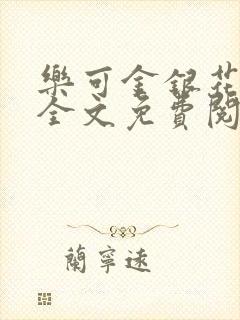 樂可金銀花
全文免費閱
蘭寧遠